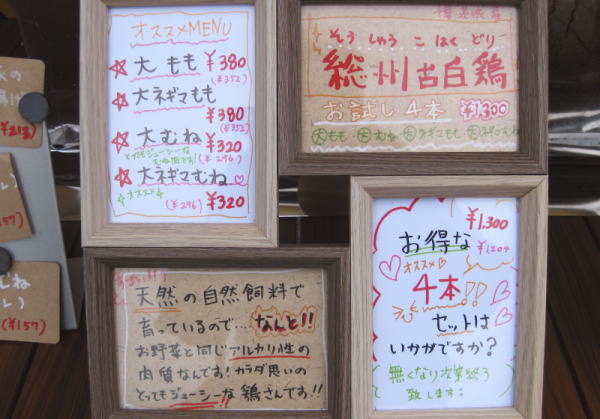 オススメMENU
☆大 もも ¥380
(¥352)
☆大ネギマもも
¥380
(¥352)
☆大むね ¥320
とってもジューシーな
むね肉です! (¥296)
☆大ネギマむね♡
オススメ (¥296) ¥320
そうしゅうこはくどり
総州古白鶏
お試し4本 ¥1300
大もも・大むね・大ネギマもも・大ネギマむね
天然の自然飼料で
育っているので…なんと!!
お野菜と同じアルカリ性の
肉質なんです!カラダ思いの
とってもジューシーな鶏さんです!!
¥1,300
お得な ¥1204
オススメ♡
4本!!
セットは
いかがですか?
(無くなり次第終了
致します。)
(¥213)
¥157)
(¥157)